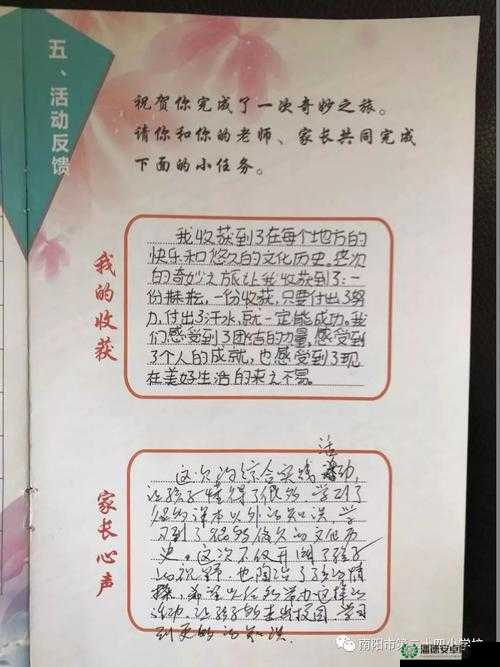 五、活动反馈
祝贺你完成了一次奇妙之旅。
请你和你的老师、家长共同完成
下面的小任务。
我的收获
我收获到了在每个地方的
快乐和悠久的文化历史。这次
的奇妙之旅让我收获到了:一
份耕耘,一份收获,只要付出了努
力,付出了汗水,就一定能成功。我
们感受到了团结的力量。感受到
了个人的成就,也感受到了现
在美好生活的来之不易。
家长心声
活
这次的综合实践动,
让孩子懂得了很多,学到了
很多课本以外的知识,学
习到了很多悠久的文化历
史。这次不仅开阔了孩子
的视野,也陶冶了孩子的情
操,希望以后多举办这样的
活动,让孩子们走出校园,学习
到更多的知识.
南阳市第二十四小学校
潘德安卓网